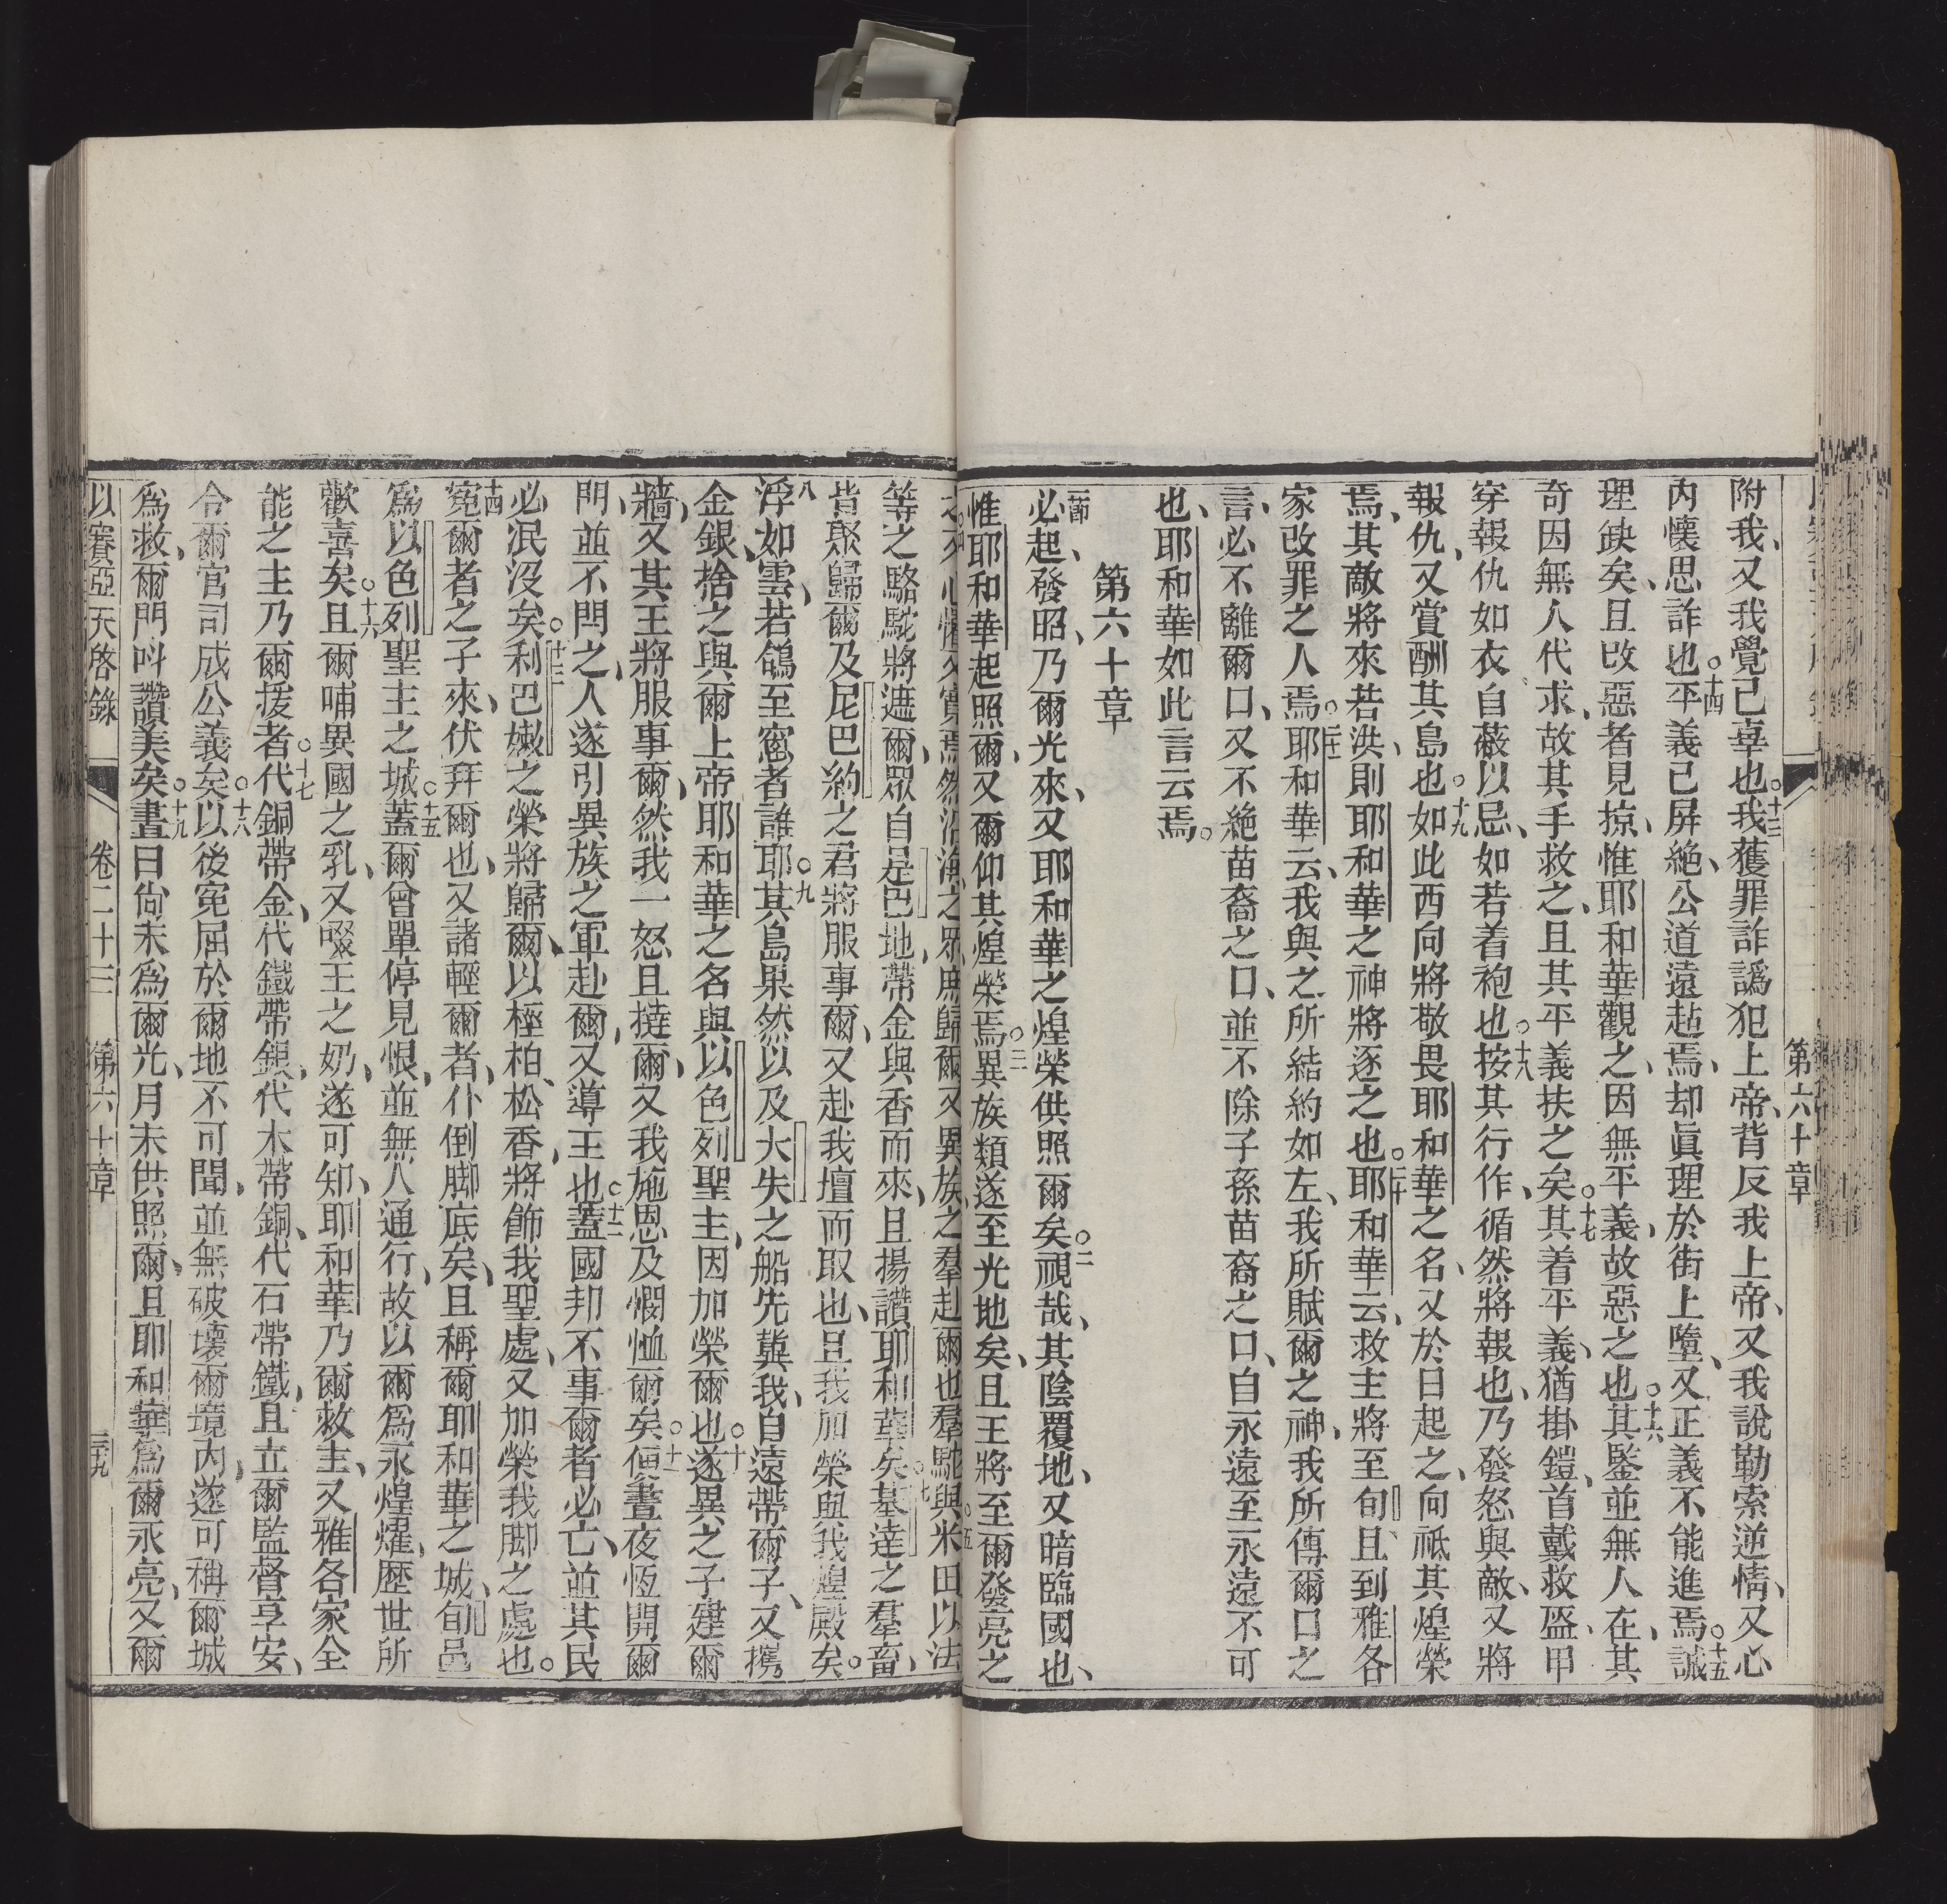 第六十章
附我、又我覺己辜也。十三我獲罪詐譌犯上帝、背反我上帝、又我說勒索逆情、又心
內懷思詐也。十四平義己屏絶、公道遠趈焉、却眞理於街上墮、又正義不能進焉。十五誠
理缺矣、且改惡者見掠、惟耶和華觀之、因無平義、故惡之也。十六其監並無人在、其
奇因無人代求、故其手救之、且其平義扶之矣。十七其着平義、猶掛鎧、首戴救盔、甲
穿報仇如衣、自蔽以忌、如若着袍也。十八按其行作、循然將報也、乃發怒與敵、又將
報仇、又賞酬其島也。十九如此西向將敬畏耶和華之名、又於日起之、向祗其煌榮
焉、其敵將來若洪、則耶和華之神將逐之也。二十耶和華云、救主將至旬、且到雅各
家改罪之人焉。二十一耶和華云、我與之所結約如左、我所賦爾之神、我所傳爾口之
言、必不離爾口、又不絶苗裔之口、並不除子孫苗裔之口、自永遠至永遠不可
也、耶和華如此言云焉。
第六十章
一節必起、發昭、乃爾光來、又耶和華之煌榮供照爾矣。二視哉、其陰覆地、又暗臨國也、
惟耶和華起照爾、又爾仰其煌榮焉。三異族類遂至光地矣、且王將至爾發亮之
焉然沿海之眾庶歸爾、又異族之羣赴爾也羣駝與米田以法
等之駱駝將遮爾、眾自是巴地、帶金與香而來、且揚讚耶和華矣。七基達之羣畜、
皆聚歸爾、及尼巴約之君將服事爾、又赴我壇而取也、且我加榮與我煌殿矣。
八浮如雲、若鴿至窓者誰耶。九其島果然以及大失之船先冀我、自遠帶爾子、又携
金銀、捨之與爾上帝耶和華之名、與以色列聖主、因加榮爾也。十遂異之子建爾
牆、又其王將服事爾、然我一怒且撻爾、又我施恩及憫恤爾矣。十一便晝夜恆開爾
門、並不閂之、人遂引異族之軍赴爾、又導王也。十二蓋國邦不事爾者必亡、並其民
必泯沒矣。十三利巴嫩之榮將歸爾、以極柏、松香、將飾我聖處、又加榮我脚之處也。
十四寃爾者之子來、伏拜爾也、又諸輕爾者、仆倒脚底矣、且稱爾耶和華之城、旬邑
爲以色列聖主之城。十五蓋爾曾單停見恨、並無人通行、故以爾爲永煌燿、歷世所
歡喜矣。十六且爾哺異國之乳、又啜王之奶、遂可知、耶和華乃爾救主、又雅各家全
能之主乃爾援者。十七代銅帶金、代鐵帶銀、代木帶銅、代石帶鐵、且立爾監督享安、
令爾官司成公義矣。十八以後寃屈於爾地不可聞、並無破壞爾境內、遂可稱爾城
爲救、爾門叫讚美矣。十九晝日尙未爲爾光、月未供照爾、且耶和華爲爾永亮、又爾
以賽亞天啓錄　卷二十三　第六十章　三十九